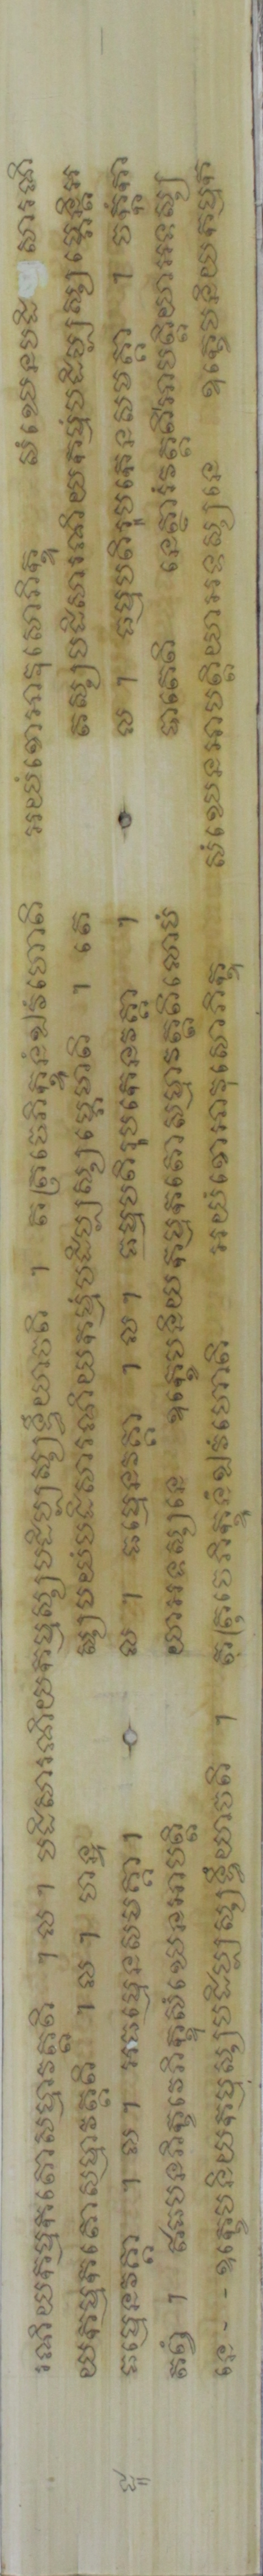 រណិយកម្មកតោសម្មាវត្តតិ ។ ល ។ បដិសារណិយកម្មស្សបដិប្បស្សទ្ធឹយាចតិ ។ តត្រចេភិក្ខូនំឯវំហោតិ អយំខោអាវុសោភិក្ខុ សំឃេនបដិ សារណិ
យកម្មកតោសម្មាវត្តតិ ។ ល ។ ហន្ទ ស្សមយំបដិសារណិយកម្មំបដិប្បស្សម្ភេមាតិ ។ តេ តស្សបដិសារណិយកម្មំបដិប្បស្សម្ភេន្តិអ
ធម្មេនវគ្គា ។ ល ។ អធម្មេនសមគ្គា ។ ល ។ ធម្មេនវគ្គា ។ ល ។ ធម្មបតិរូបកេនវគ្គា ។ ល ។ ធម្មបតិរូបកេនសមគ្គា ។ ចក្កំកា
តព្វំ ។ ឥធបនភិក្ខវេភិក្ខុសំឃេនអាបត្តិ យាអទស្សនេ ឧក្ខេបនិយកម្មកតោសម្មាវត្តតិលោមំ បាតេតិ នេត្ថារំវត្តតិអាបត្តិយាអទស្ស
នេ - - ឧក្ខេបនិយកម្មស្សបដិប្បស្សទ្ធឹយាចតិ ។ តត្រចេភិក្ខូនំឯវំហោតិ អយំខោអាវុសោភិក្ខុ សំឃេនអាបត្តិយាអទស្សនេ ឧក្ខេបនិយកម្មក